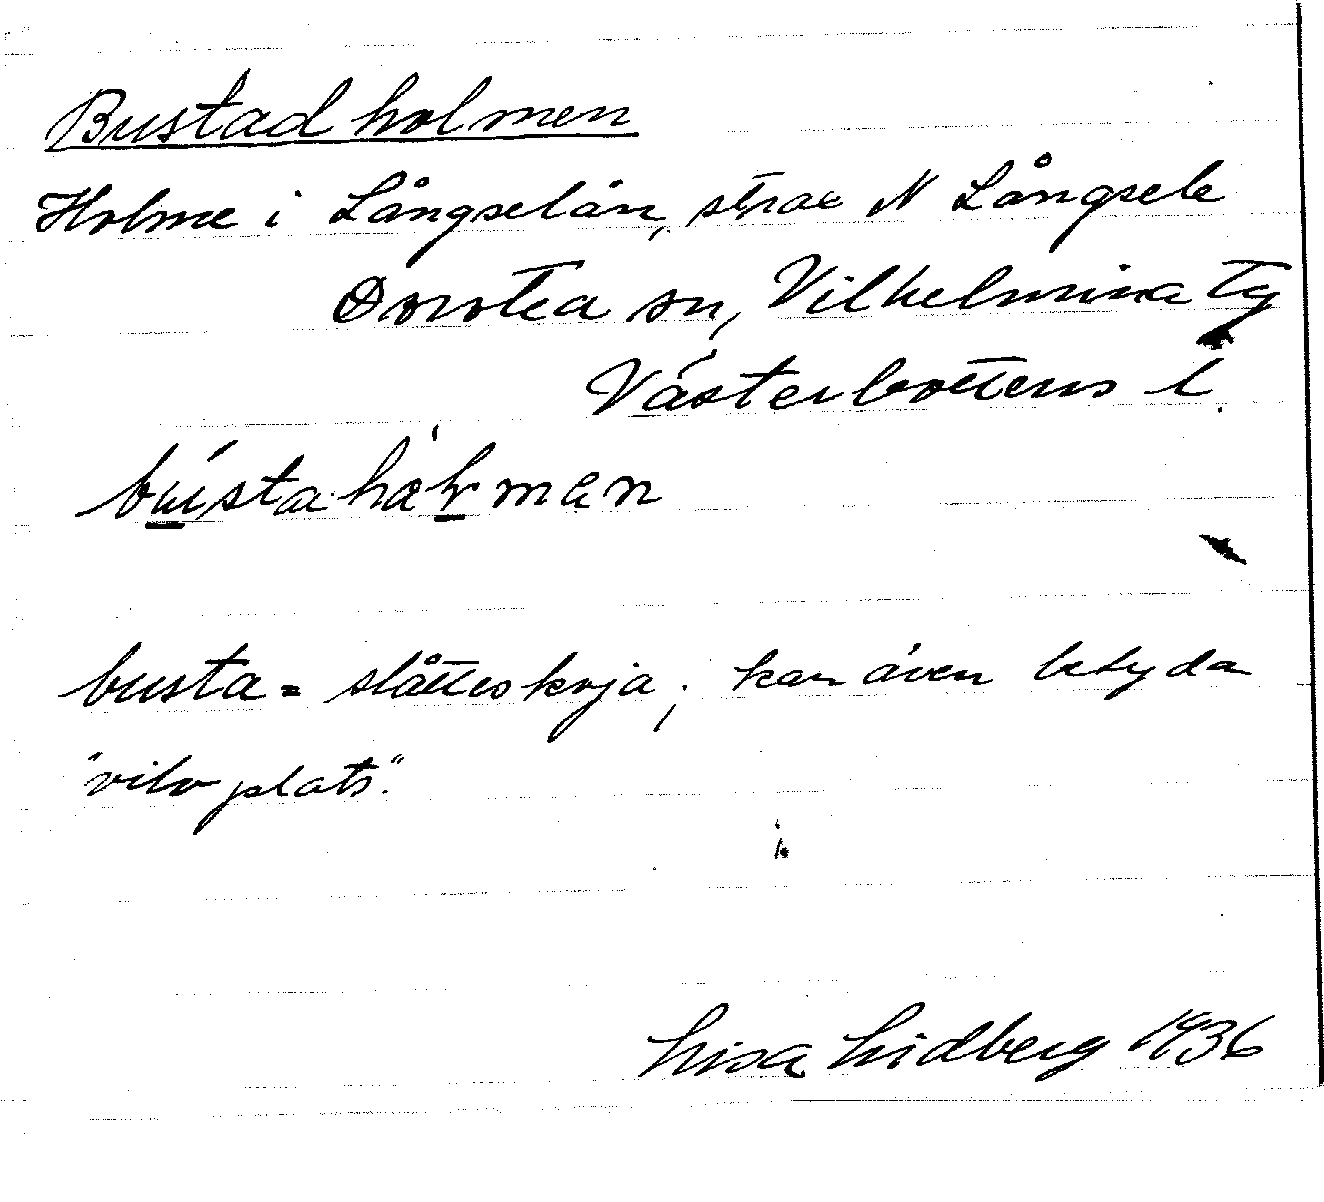 Bustadholmen
Holme i Långselån, strax N Långsele
Dorotea sn, Vilhelmina tg
Västerbottens l.
busta = slåtteskoja; kan även betyda
"viloplats".
Lisa Lidberg 1936